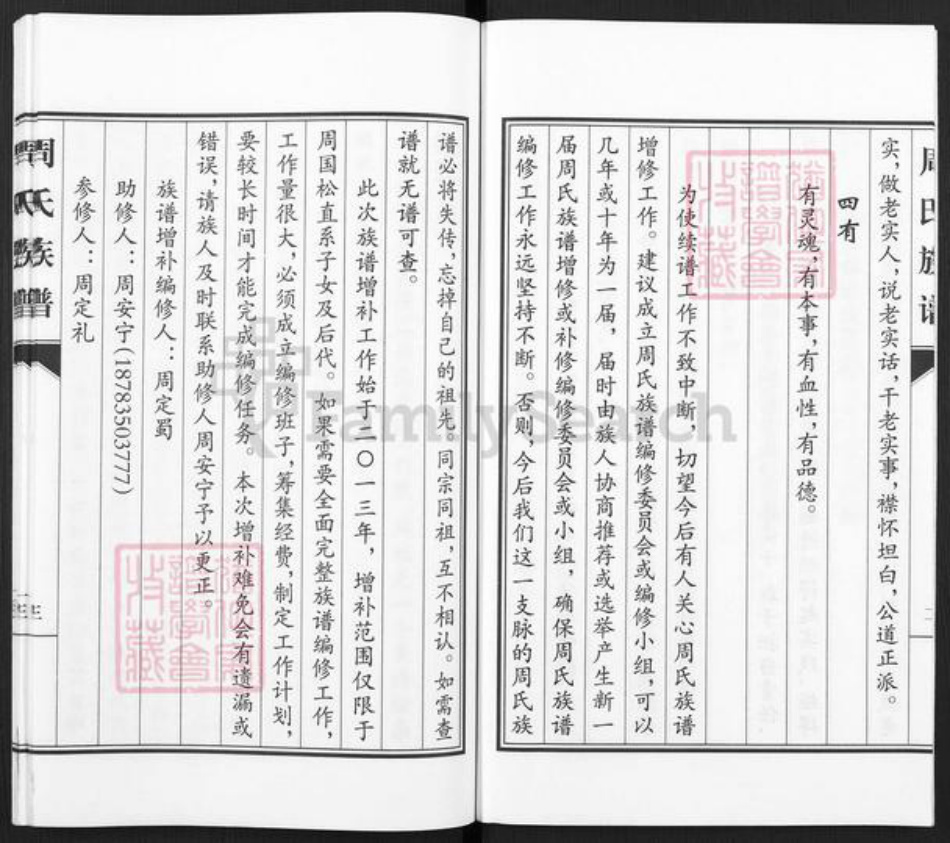 实，做老实人，说老实话，干老实事，襟怀坦白，公道正派。
四有
有灵魂，有本事，有血性，有品德。
为使续谱工作不致中断，切望今后有人关心周氏族谱
增修工作。建议成立周氏族谱编修委员会或编修小组，可以
几年或十年为一届，届时由族人协商推荐或选举产生新一
届周氏族谱增修或补修编修委员会或小组，确保周氏族谱
编修工作永远坚持不断。否则，今后我们这一支脉的周氏族
谱必将失传，忘掉自己的祖先。同宗同祖，互不相认。如需查
谱就无谱可查。
此次族谱增补工作始于二〇一三年，增补范围仅限于
周国松直系子女及后代。如果需要全面完整族谱编修工作，
工作量很大，必须成立编修班子，筹集经费，制定工作计划，
要较长时间才能完成编修任务。本次增补难免会有遗漏或
错误，请族人及时联系助修人周安宁予以更正。
族谱增补编修人：周定蜀
助修人：周安宁(18783503777)
参修人：周定礼
周氏族谱
FamilySearch